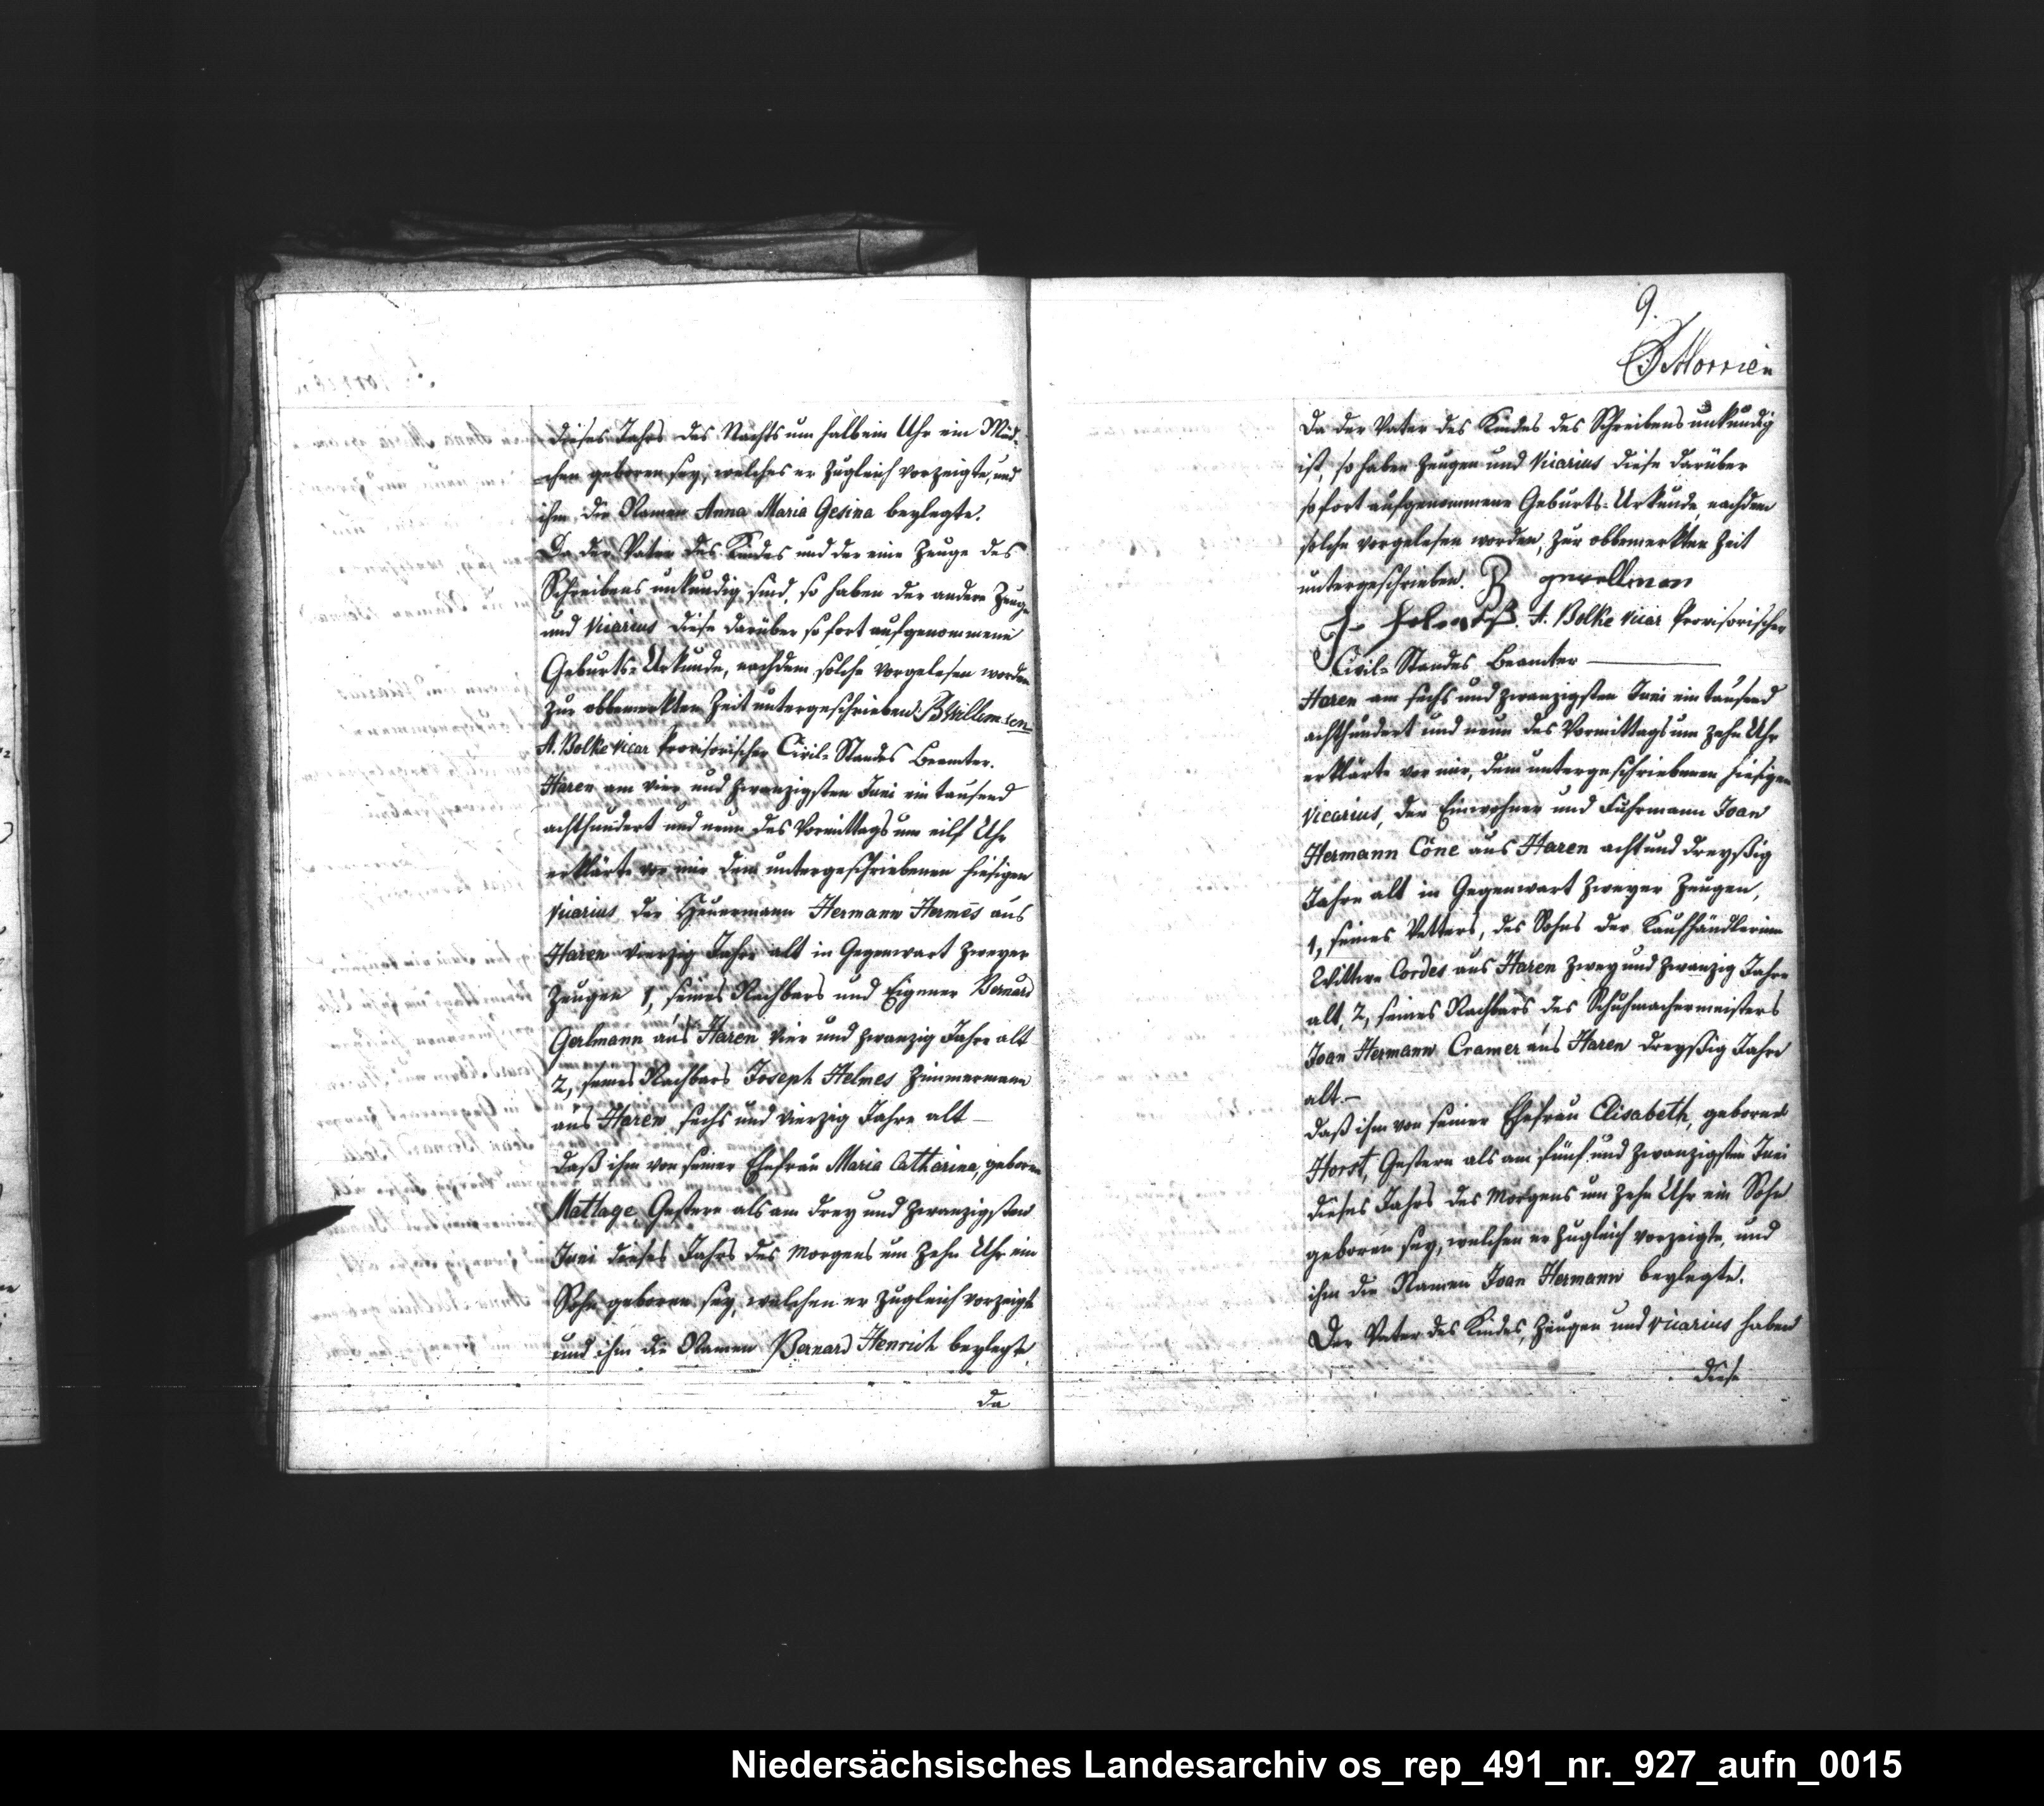 dieses Jahrs des Nachts um halb ein Uhr ein Mäd-
-chen geboren sey, welches er zugleich vorzeigte, und
ihm die Namen Anna Maria Gesina beylegte.
Da der Vater des Kindes und der eine Zeuge des
Schreibens unkundig sind, so haben der andere Zeuge
und Vicarius diese darüber sofort aufgenommene
Geburts-Urkunde, nachdem solche vorgelesen worden
zur obbemerkten Zeit untergeschrieben. B Willemsen
A. Bolke vicar Provisorischer Civil-Standes Beamter.
Haren am vier und zwanzigsten Juni ein tausend
achthundert und neun des Vormittags um eilf Uhr
erklärte vor mir dem untergeschriebenen hiesigen
Vicarius der Heuermann Hermann Hermes aus
Haren vierzig Jahre alt in Gegenwart zweyer
Zeugen 1, seines Nachbars und Eigener Bernard
Gerlmann aus Haren vier und zwanzig Jahre alt
2, seines Nachbars Joseph Helmes Zimmermann
aus Haren sechs und vierzig Jahre alt —
daß ihm von seiner Ehefrau Maria Catharina, geboren
Mattage Gestern als am drey und zwanzigsten
Juni dieses Jahrs des Morgens um zehn Uhr ein
Sohn geboren sey, welchen er zugleich vorzeigte
und ihm die Namen Bernard Henrich beylegte,
da
9.
Morrien
Da der Vater des Kindes des Schreibens unkundig
ist, so haben Zeugen und Vicarius diese darüber
sofort aufgenommene Geburts-Urkunde nachdem
solche vorgelesen worden, zur obbemerkten Zeit
untergeschrieben. B
A. Bolke vicar Provisorischer
Civil-Standes Beamter —
Haren am sechs und zwanzigsten Juni ein tausend
achthundert und neun des Vormittags um zehn Uhr
erklärte vor mir, dem untergeschriebenen hiesigen
Vicarius, der Einwohner und Fuhrmann Joan
Hermann Cöne aus Haren acht und dreyßig
Jahre alt in Gegenwart zweyer Zeugen,
1, seines Vetters, des Sohns der Kaufhändlerinn
Wittwe Cordes aus Haren zwey und zwanzig Jahre
alt, 2, seines Nachbars des Schuhmachermeisters
Joan Hermann Cramer aus Haren dreyßig Jahre
alt. —
daß ihm von seiner Ehefrau Elisabeth, geboren
Horst, Gestern als am fünf und zwanzigsten Juni
dieses Jahrs des Morgens um zehn Uhr ein Sohn
geboren sey, welchen er zugleich vorzeigte, und
ihm die Namen Joan Hermann beylegte.
Der Vater des Kindes, Zeugen und Vicarius haben
diese
Niedersächsisches Landesarchiv os_rep_491_nr._927_aufn_0015